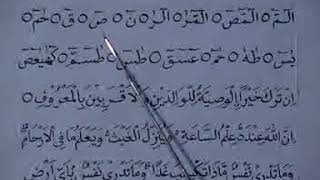 الٓمٓ ○ الٓمٓصٓ ○ الٓمٓرٰ ○ الٓرٰ ○ نٓ ○ صٓ ○ قٓ ○ حٰمٓ ○
يٰسٓ ○ طٰهٰ ○ حٰمٓ ○ عٓسٓقٓ ○ طٰسٓ ○ طٰسٓمٓ ○ كٓهٰيٰعٓصٓ
اِنْ تَرَكَ خَيْرَا ۨالْوَصِيَّةُ لِلْوَالِدَيْنِ وَالْاَقْرَبِيْنَ بِالْمَعْرُوْفِ ○
اِنَّ اللّٰهَ عِنْدَهٗ عِلْمُ السَّاعَةِ وَيُنَزِّلُ الْغَيْثَ وَيَعْلَمُ مَا فِى الْاَرْحَامِ
وَمَا تَدْرِىْ نَفْسٌ مَّاذَا تَكْسِبُ غَدًا وَمَا تَدْرِىْ نَفْسٌ بِاَىِّ اَرْضٍ